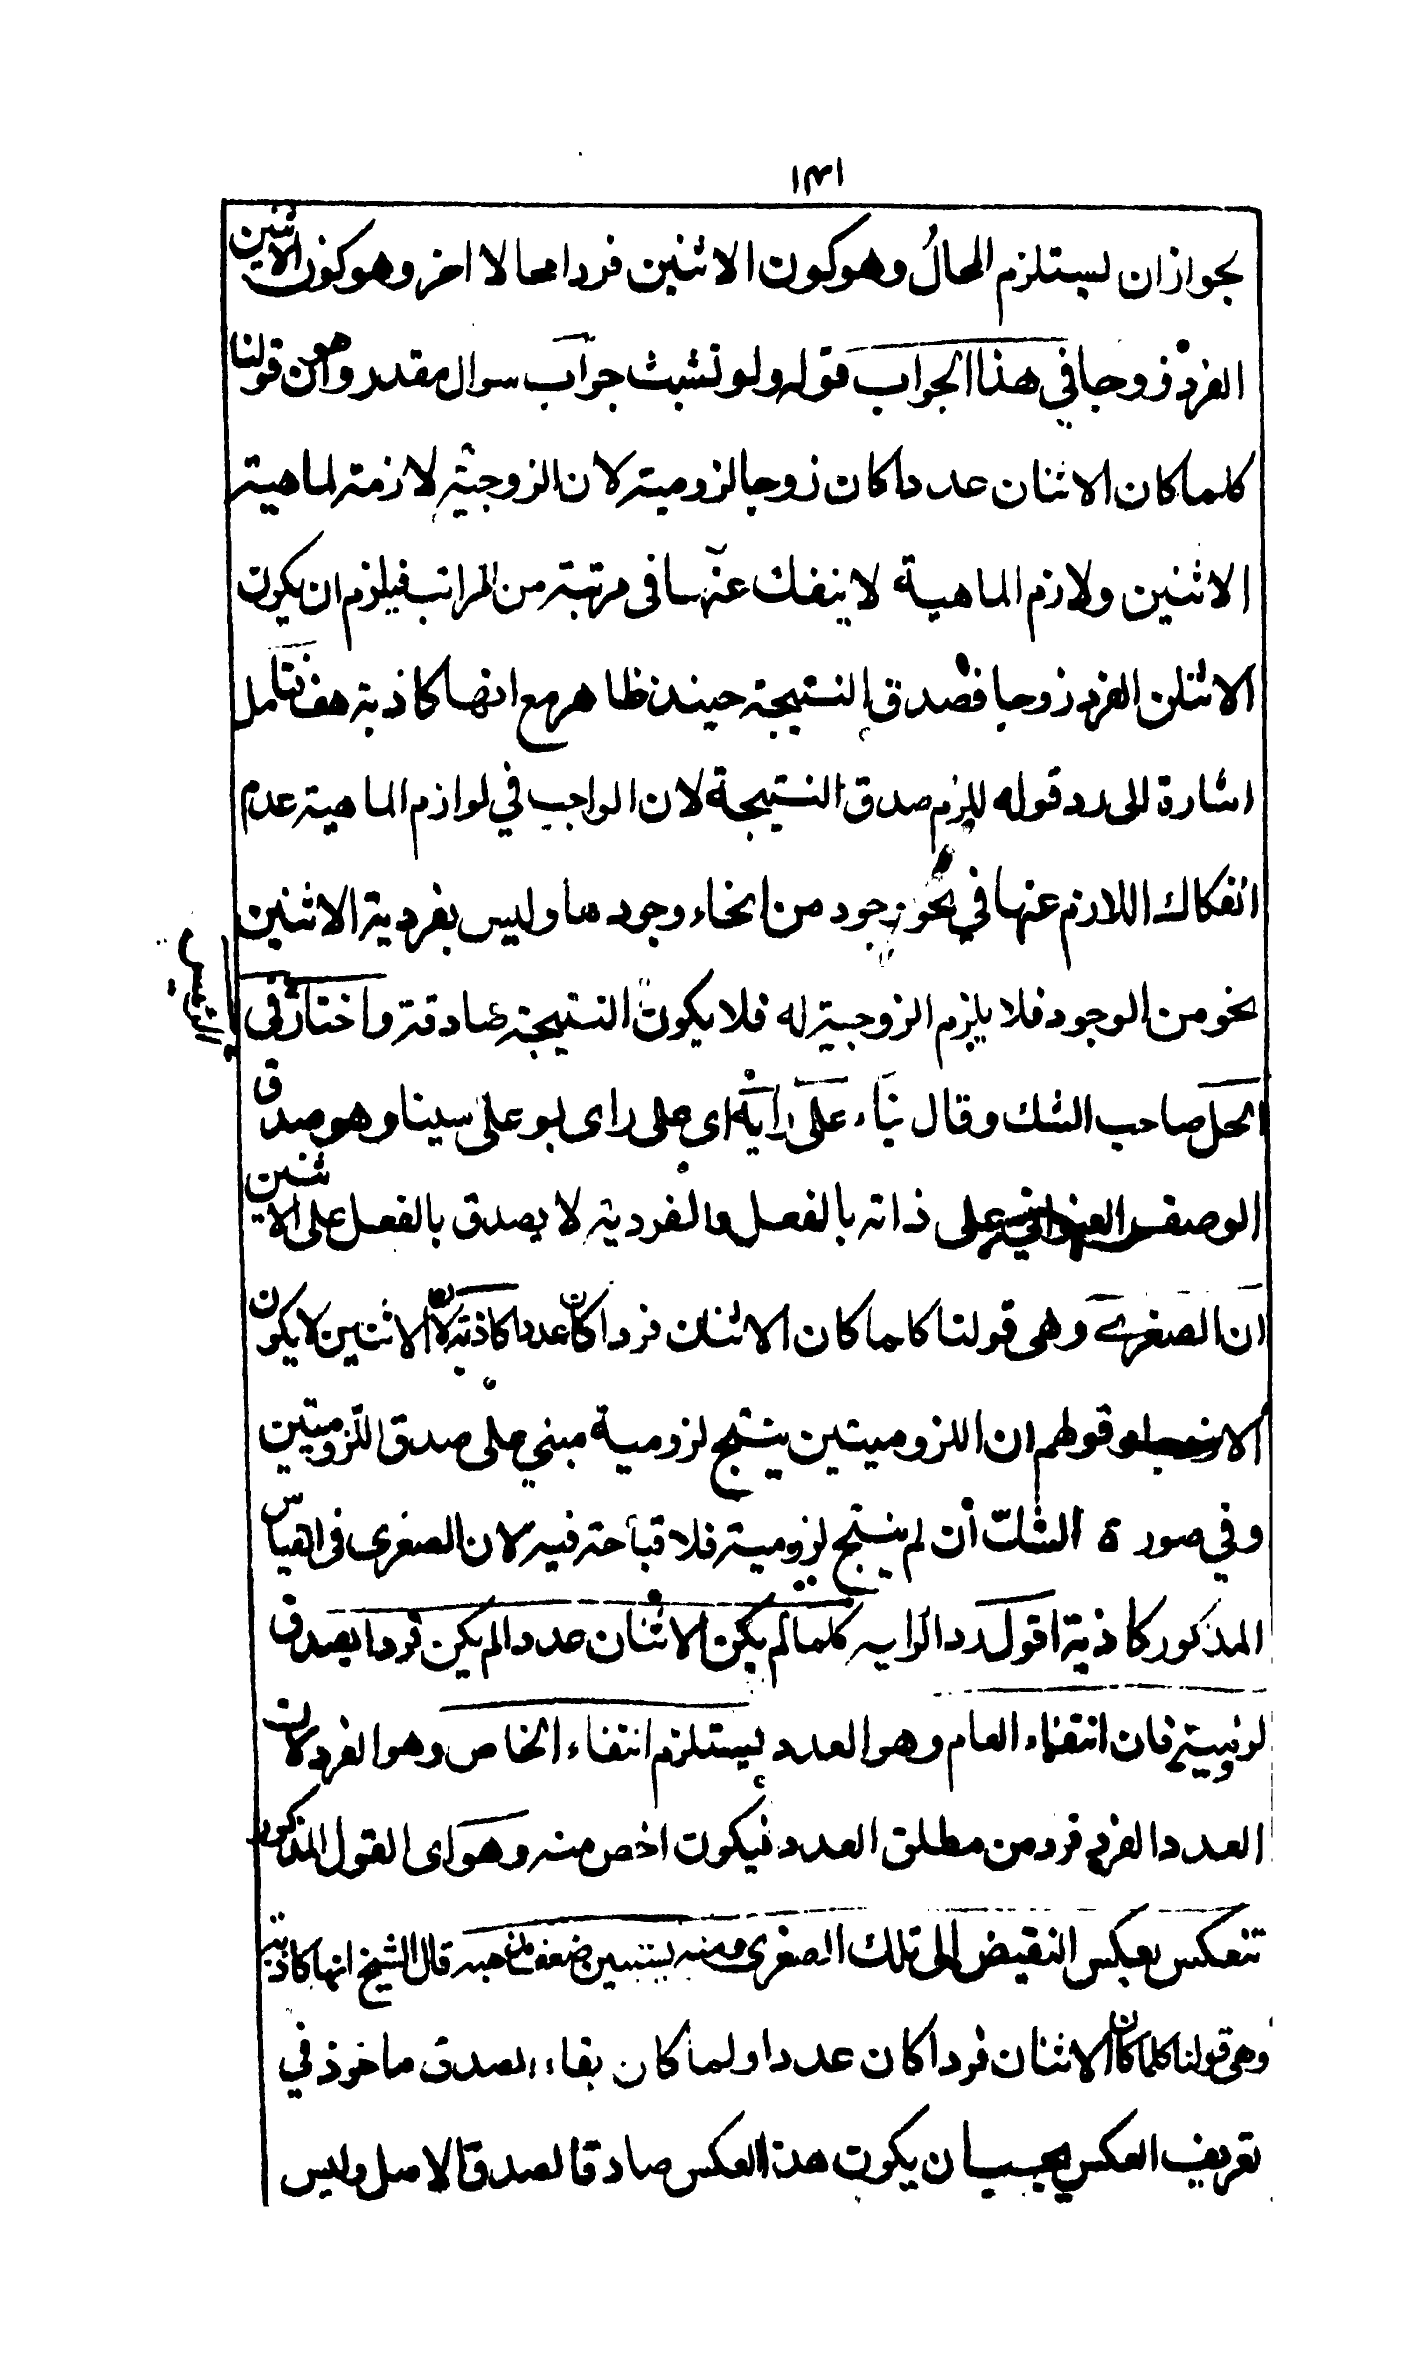 ١٣١
لجواز ان يستلزم المحالُ وهو كون الاثنين فردا محالا اخر وهو كون الاثنين
الفرد زوجا في هذا الجواب قوله ولو تشبث جواب سوال مقدر وهو ان قولنا
كلما كان الاثنان عددا كان زوجا لزومية لان الزوجية لازمة لماهية
الاثنين ولازم الماهية لا ينفك عنها فى مرتبة من المراتب فيلزم ان يكون
الاثنان الفرد زوجا فصدق النتيجة حينئذ ظاهر مع انها كاذبة هف فتامل
اشارة الى رد قوله للزم صدق النتيجة لان الواجب في لوازم الماهية عدم
انفكاك اللازم عنها في نحو وجود من انحاء وجودها وليس بفردية الاثنين
نحو من الوجود فلا يلزم الزوجية له فلا يكون النتيجة صادقة واختار فى
الرئيس
الحل صاحب الشك وقال بناء على رايه اى على راى بو على سينا وهو صدق
الوصف العنوانى على ذاته بالفعل والفردية لا يصدق بالفعل على الاثنين
ان الصغرے وهى قولنا كلما كان الاثنان فردا كان عددا كاذبة لان الاثنين لا يكون
وقولهم ان اللزوميتين ينتج لزومية مبني على صدق اللزوميتين
وفي صورة الشك ان لم ينتج لزومية فلا قباحة فيه لان الصغرى فى القياس
المذكور كاذبة اقول ردا لرايه كلما لم يكن الاثنان عددا لم يكن فردا يصدق
لزومية فان انتفاء العام وهو العدد يستلزم انتفاء الخاص وهو الفرد لان
العدد الفرد فرد من مطلق العدد فيكون اخص منه وهو اى القول المذكور
تنعكس بعكس النقيض الى تلك الصغرى ومنه يستبين ضعف مذهبه قال الشيخ انها كاذبة
وهى قولنا كلما كان الاثنان فردا كان عددا ولما كان بقاء الصدق ماخوذ في
تعريف العكس يجب ان يكون هذا العكس صادقا لصدق الاصل وليس